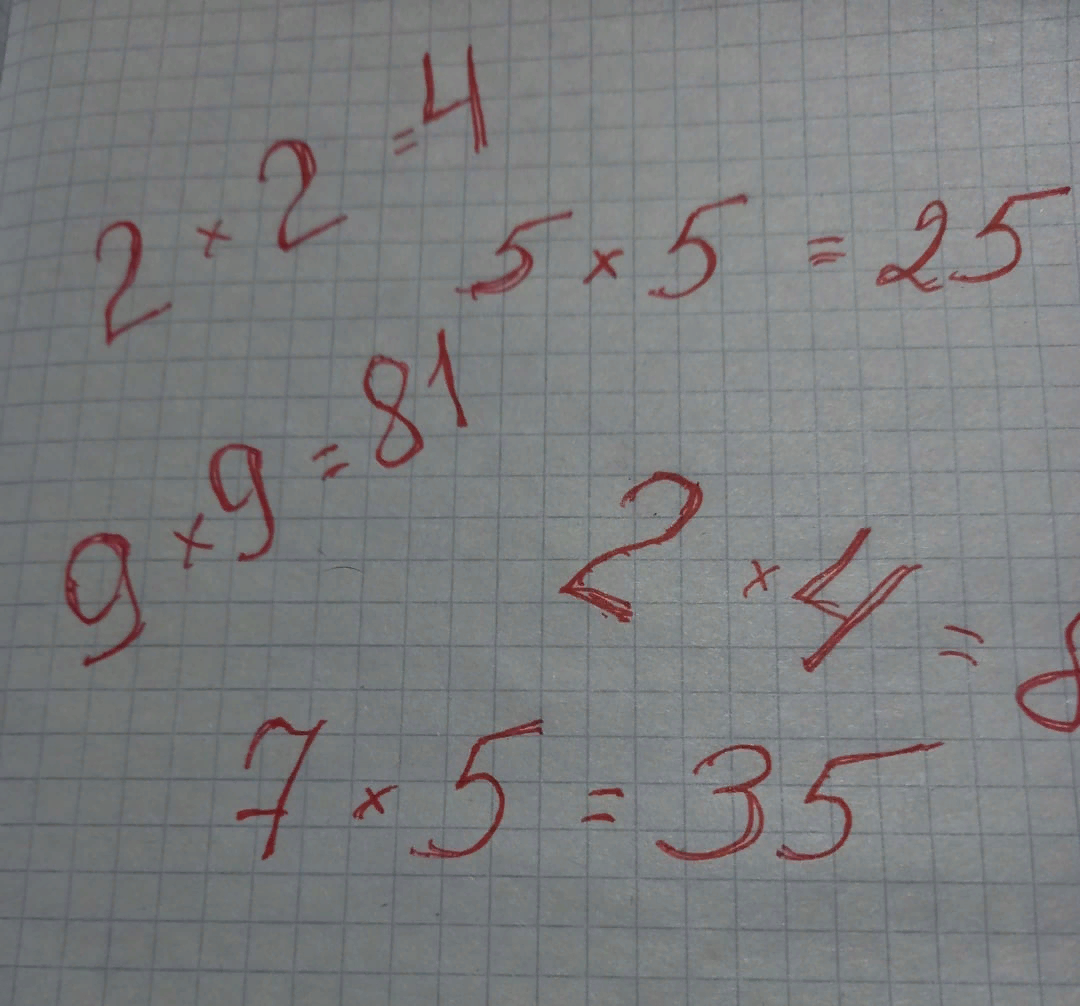 2 × 2 = 4
5 × 5 = 25
9 × 9 = 81
2 × 4 = 8
7 × 5 = 35